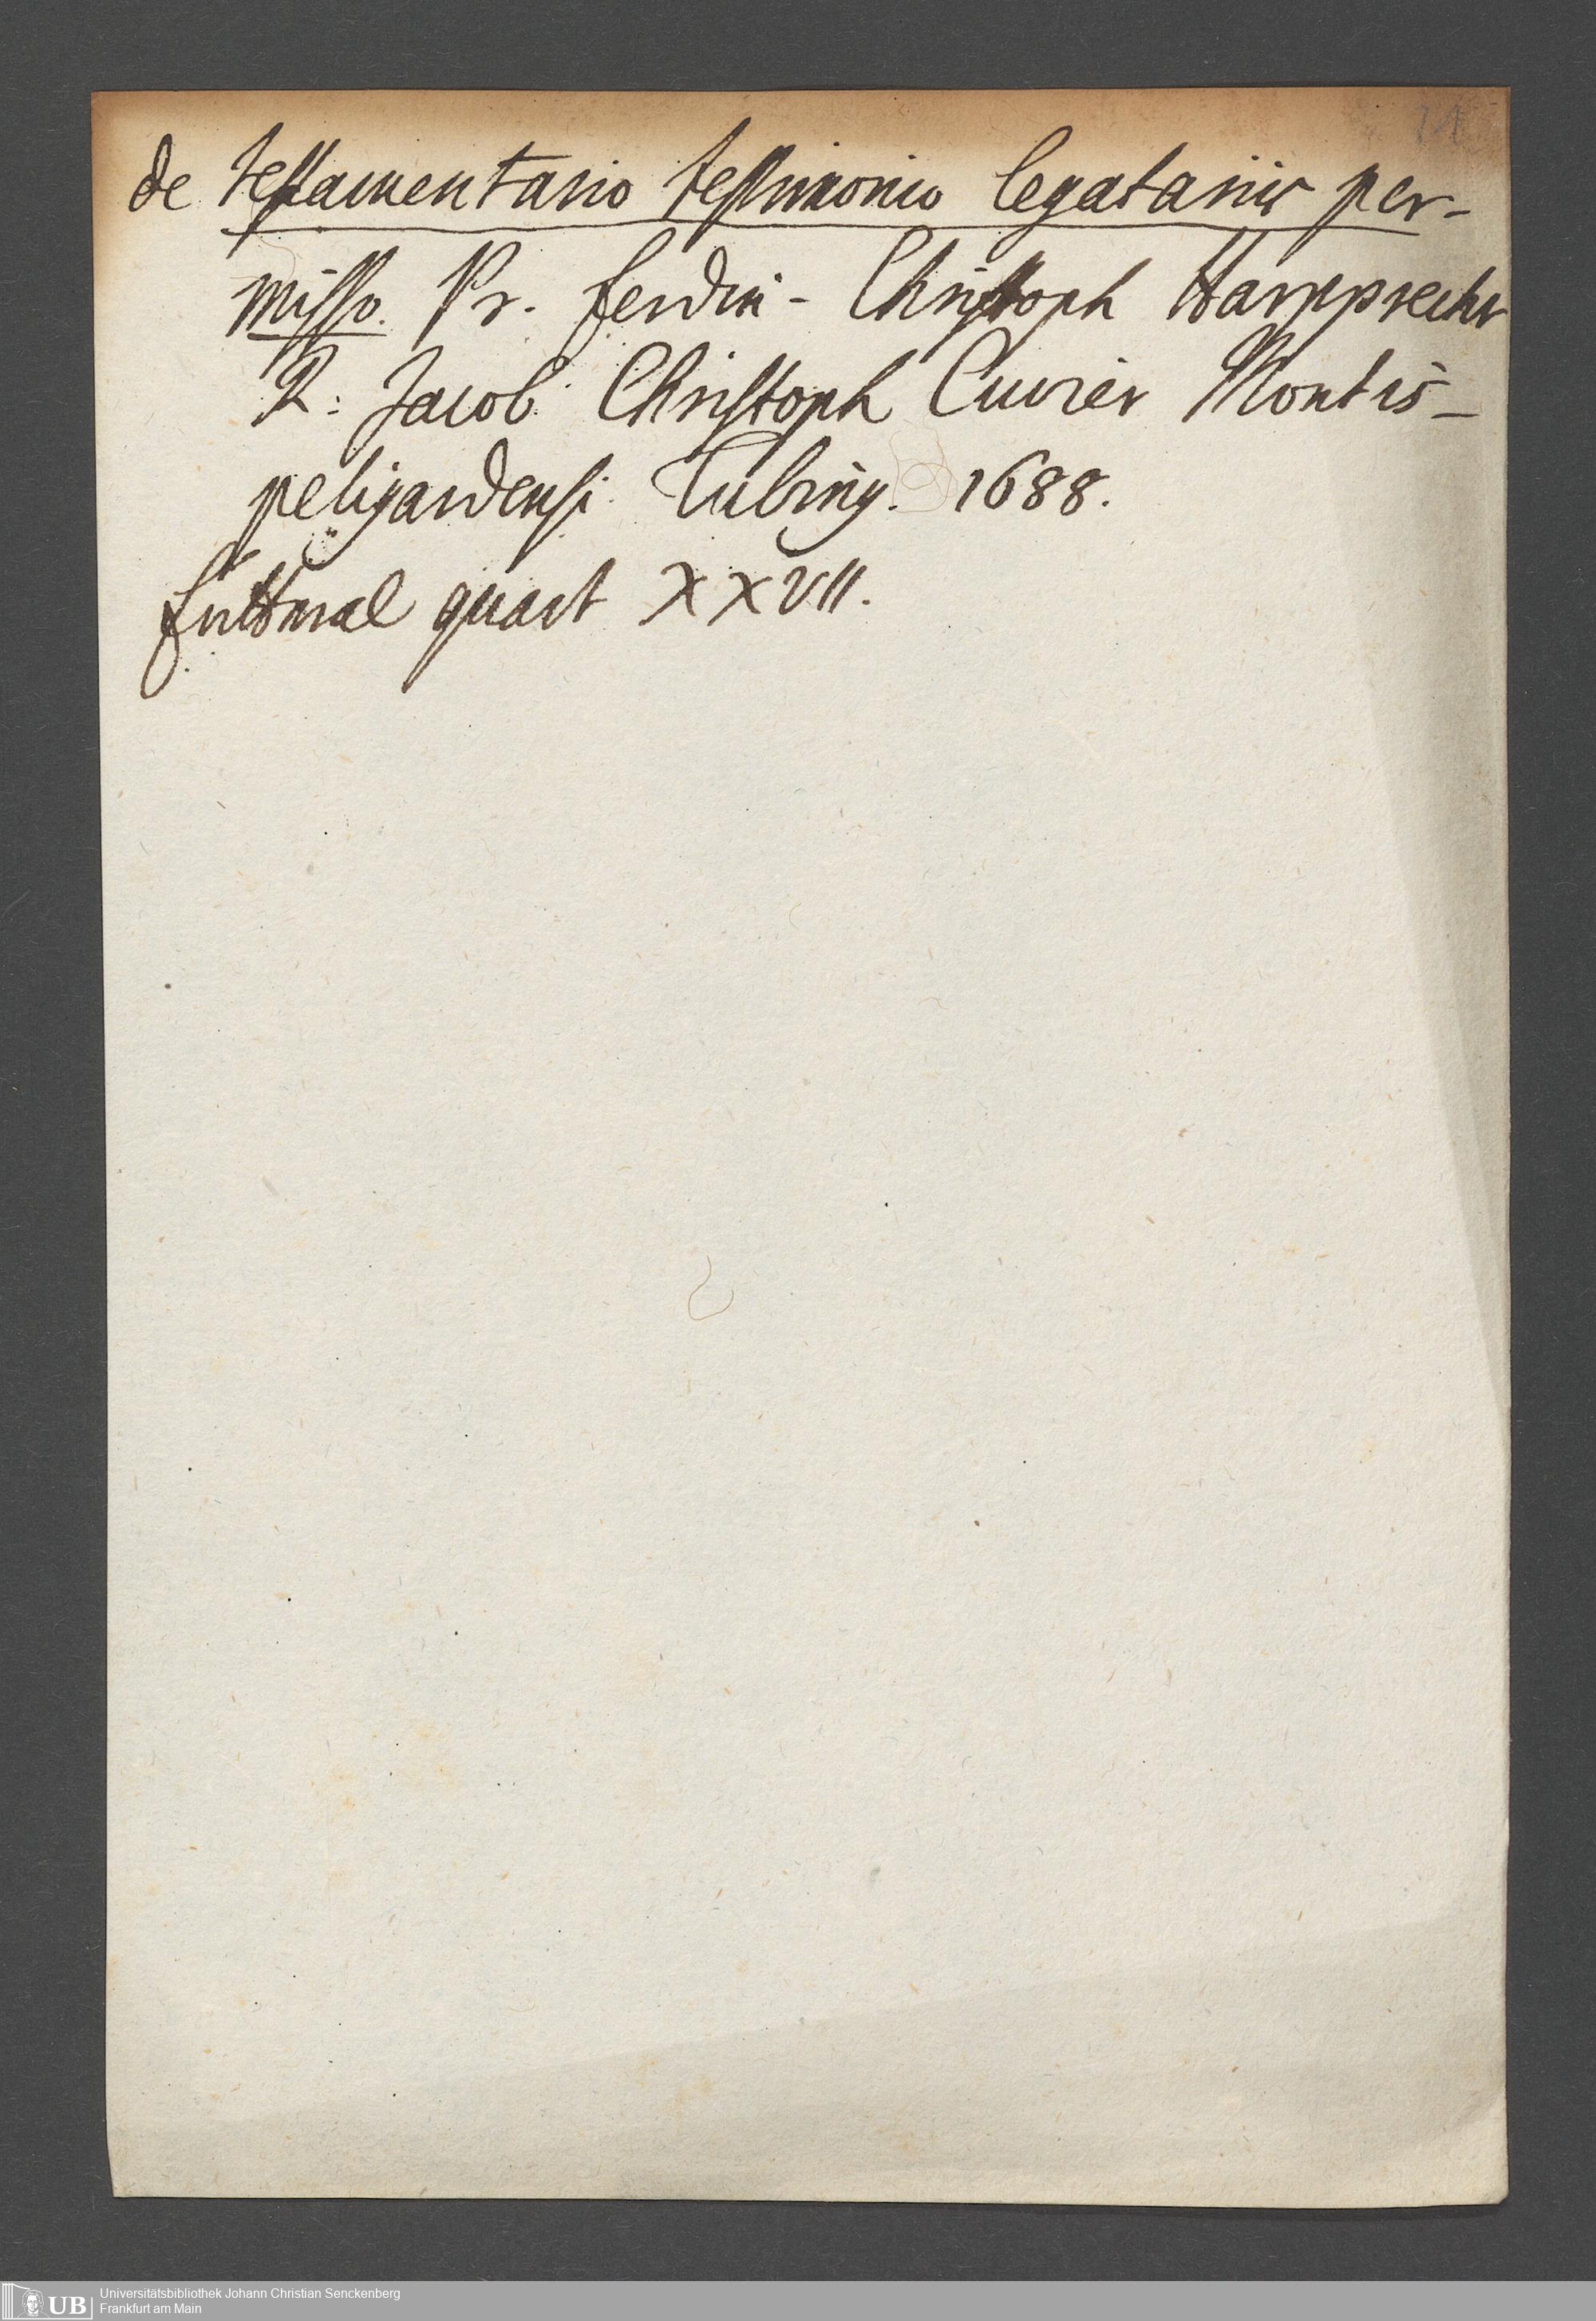 11
de testamentario testimonio legatariis per-
misso. Pr. Ferdin- Christoph Harpprecht
R: Jacob Christoph Cuvier Montis-
peligardensi. Tubing. 1688.
Futtural quart XXVII.
UB Universitätsbibliothek Johann Christian Senckenberg
Frankfurt am Main